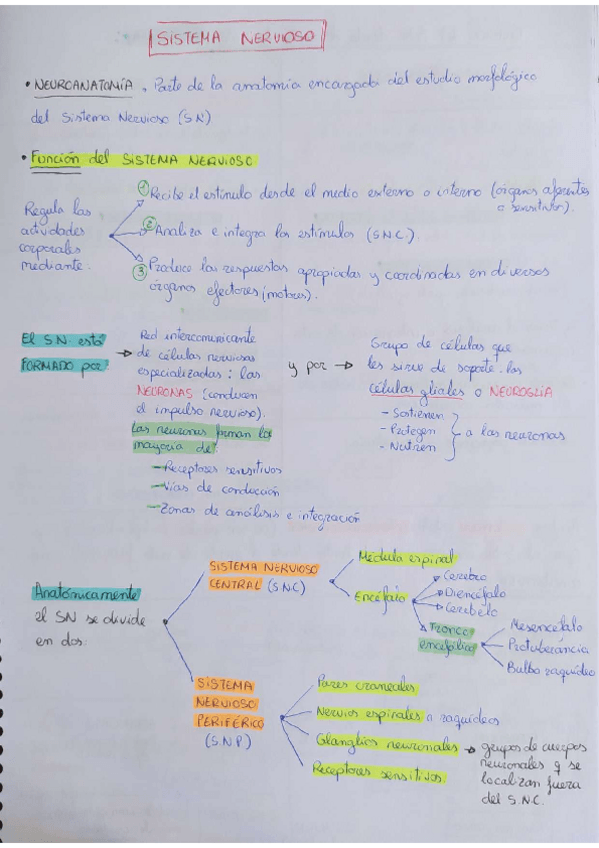 SISTEMA NERVIOSO
• NEUROANATOMÍA, Parte de la anatomía encargada del estudio morfológico
del Sistema Nervioso (S.N)
• Función del SISTEMA NERVIOSO
Regula las
actividades
corporales
mediante.
① Recibe el estímulo desde el medio externo o interno (órganos aferentes
o sensitivos).
② Analiza e integra los estímulos (S.N.C).
③ Produce las respuestas apropiadas y coordinadas en diversos
órganos efectores (motores).
El S.N. está
FORMADO por:
→ Red intercomunicante
de células nerviosas
especializadas: las
NEURONAS (conducen
el impulso nervioso).
Las neuronas forman la
mayoría de:
– Receptores sensitivos
– Vías de conducción
– Zonas de análisis e integración
y por →
Grupo de células que
les sirve de soporte. las
células gliales o NEUROGLIA
– Sostienen
– Protegen
– Nutren
a las neuronas
Anatómicamente
el SN se divide
en dos:
SISTEMA NERVIOSO
CENTRAL (S.N.C)
Médula espinal
Encéfalo
Cerebro
Diencéfalo
Cerebelo
Tronco
encefálico
Mesencéfalo
Protuberáncia
Bulbo raquídeo
SISTEMA
NERVIOSO
PERIFÉRICO
(S.N.P)
Pares craneales
Nervios espinales o raquídeos
Glanglios neuronales → grupos de cuerpos
neuronales q se
localizan fuera
del S.N.C.
Receptores sensitivos.